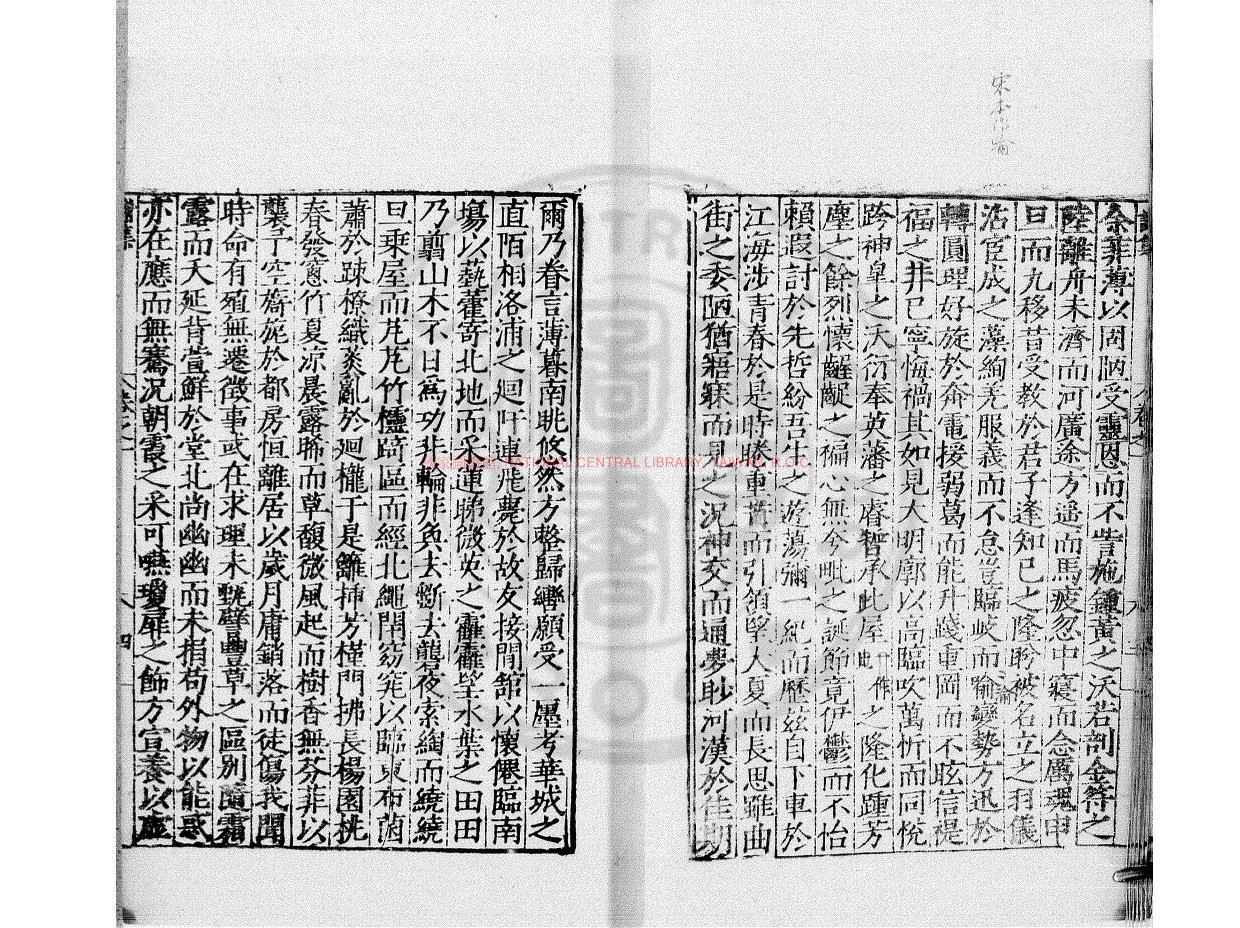 宋本作喻
余菲薄以固陋受靈恩而不訾施鍾黃之沃若剖金符之
陸離舟未濟而河廣途方遥而馬疲忽中寢而念厲魂申
旦而九移昔受教於君子逢知已之隆盻被名立之羽儀
沾宦成之藻絢羌服義而不怠豈臨岐而喻變勢方迅於
轉圓理好旋於奔電援弱葛而能升踐重岡而不眩信禔
福之非已寧悔禍其如見大明廓以高臨吹萬忻而同悅
跨神皐之沃衍奉英藩之睿智承此屋一作之隆化踵芳
塵之餘烈懷齷齪之褊心無夸毗之誕節竟伊鬱而不怡
賴遐討於先哲紛吾生之遊蕩彌一紀而歷茲自下車於
江海涉青春於是時勝重蕢而引領望大夏而長思雖曲
街之委陋猶寤寐而見之況神交而通夢眇河漢於佳期
爾乃眷言薄暮南眺悠然方整歸轡願受一廛考華城之
直陌相洛浦之廻阡連飛甍於故友接閒舘以懷僊臨南
塲以藝藿寄北地而采蓮睇微英之靃靃望水葉之田田
乃翦山木不日爲功非輪非奐去斵去礱夜索綯而繞繞
旦乗屋而芃芃竹櫺踦區而經北繩閈窈窕以臨東布菌
蕭於疎橑織蒸亂於廻櫳于是籬揷芳槿門拂長楊園桃
春發窻竹夏凉晨露晞而草馥微風起而樹香無芬菲以
襲予空旖旎於都房恒離居以歲月庸銷落而徒傷我聞
時命有殖無遷徵事或在求理未甄譬豐草之區別隨霜
露而夭延背萱鮮於堂北尚幽幽而未捐苟外物以能惑
亦在應而無騫況朝霞之采可嚥瓊扉之飾方宣養以虛
NATIONAL CENTRAL LIBRARY, TAIWAN, R.O.C.